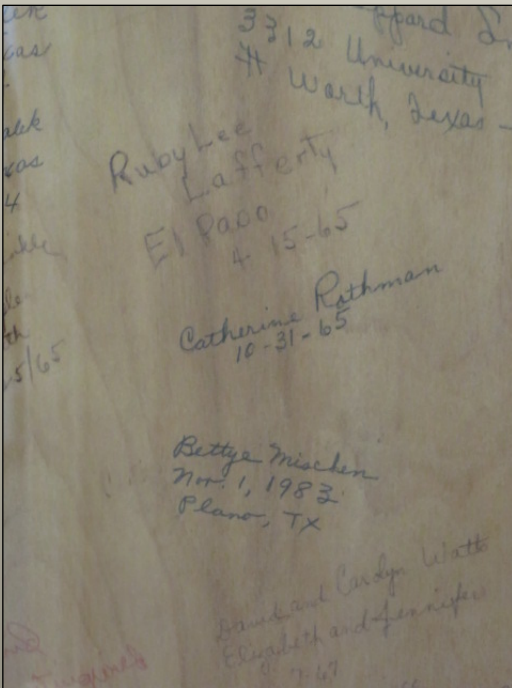 xas
xas
4
th
5/65
3312 University
Worth, Texas -
Ruby Lee
Lafferty
El Paso
4 15-65
Catherine Rothman
10-31-65
Bettye Mischen
Nov. 1, 1983
Plano, TX
David and Carolyn Watts
Elizabeth and Jennifer
7-67